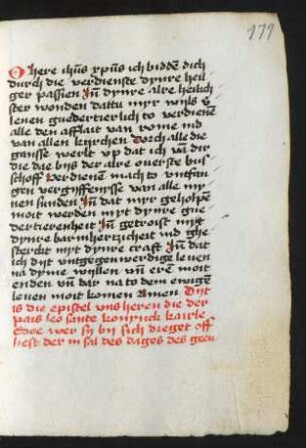 177
O here ihūs xpūs ich bidden dich
durch die verdienste dynre heil
ger passien In dynre alre heilich
ster wonden dattu myr wyls v̄
lenen guedertierlich to verdienē
alle den afflait van rome ind
van allen kyrchen Dorch alle die
gansse werlt vp dat ich vā dir
die dae bis der alre ouerste bus
schoff verdienen mach to vntfan
gen vergyffenysse van alle my
nen sunden In dat myr geholpē
moit werden myt dynre gue
dertierenheit In getroist myt
dynre barmhertzicheit ind ghe
sterckt myt dynre craft In dat
ich dyt vntgegenwerdige leuen
na dyme wyllen vn̄ erē moit
enden vn̄ dar na to dem ewigē
leuen moit komen Amen Dyt
is die epistel vns heren die der
pais leo sante konynck kairle
Soe wer sy by sich dreget off
liest der in sal des dages des geen